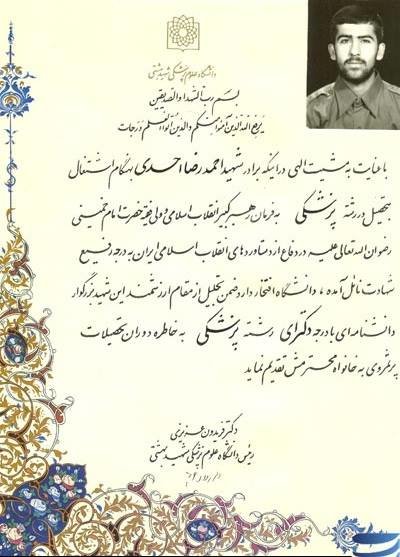 دانشگاه علوم پزشکی شهید بهشتی
بسم رب الشهداء والصدیقین
یرفع الله الذین آمنوا منکم والذین اوتوا العلم درجات
با عنایت به مشیت الهی در اینکه برادر شهید احمد رضا احدی بهنگام اشتغال
بتحصیل در رشته پزشکی به فرمان رهبر کبیر انقلاب اسلامی و ولی فقیه حضرت امام خمینی
رضوان الله تعالی علیه در دفاع از دستاوردهای انقلاب اسلامی ایران به درجه رفیع
شهادت نائل آمده، دانشگاه افتخار دارد ضمن تجلیل از مقام ارزشمند این شهید بزرگوار
دانشنامه ای با درجه دکترای رشته پزشکی به خاطره دوران تحصیلات
پرثمروی به خانواده محترمش تقدیم نماید
دکتر فریدون عزیزی
رئیس دانشگاه علوم پزشکی شهید بهشتی